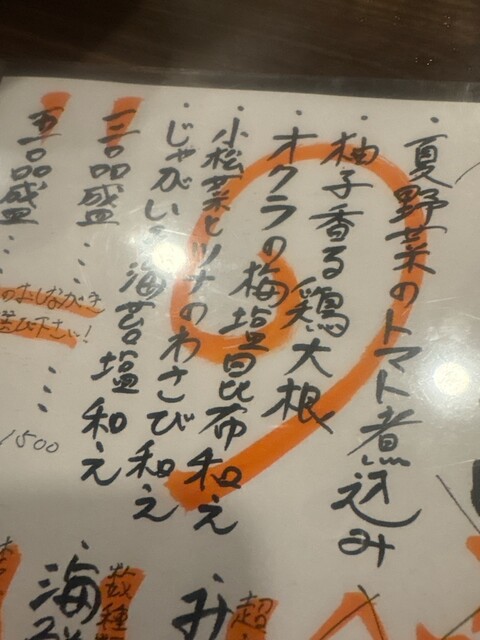 ・夏野菜のトマト煮込み
・柚子香る鶏大根
・オクラの梅塩昆布和え
・小松菜とツナのわさび和え
・じゃがいも海苔塩和え
三品盛……
五品盛……
のおしながき
選び下さい!
1500
数種
海
超
み